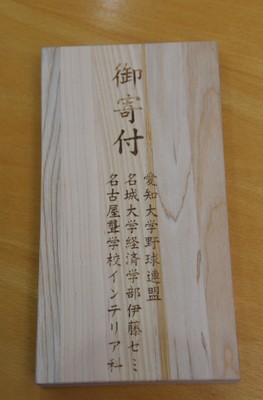 御寄付
愛知大学野球連盟
名城大学経済学部伊藤ゼミ
名古屋聾学校インテリア科